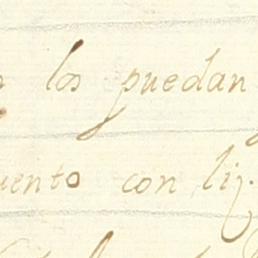 los puedan
uento con lij.